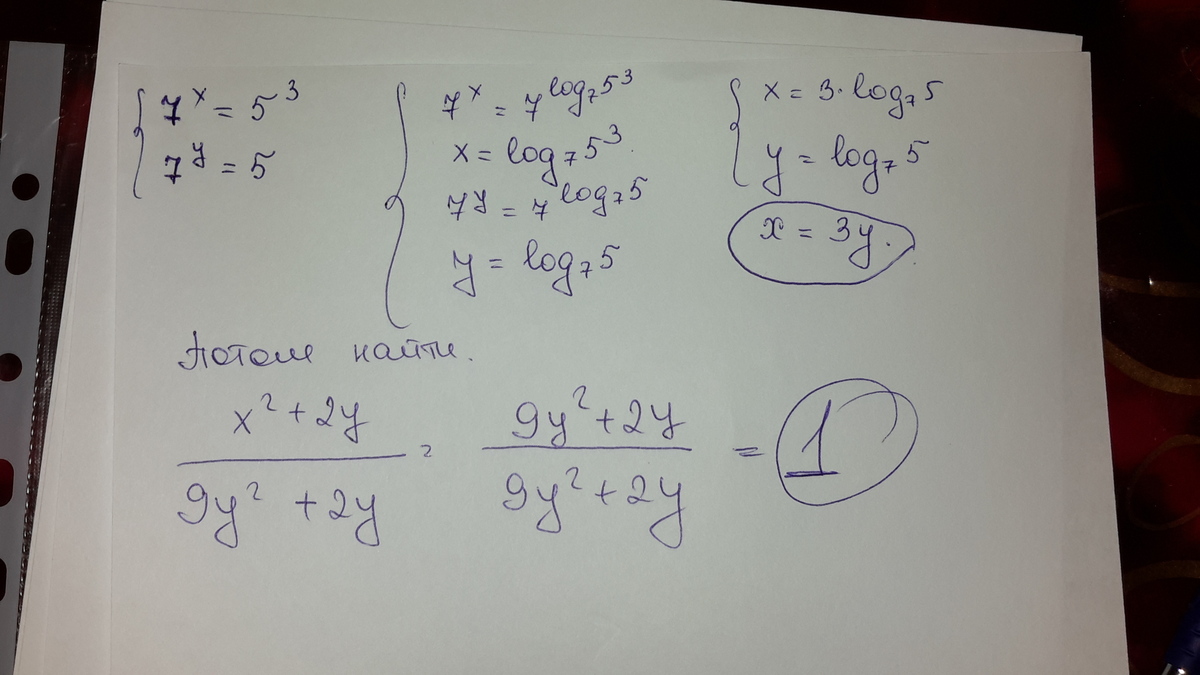 7^x = 5^3
7^y = 5
7^x = 7^{log_7 5^3}
x = log_7 5^3.
7^y = 7^{log_7 5}
y = log_7 5
x = 3·log_7 5
y = log_7 5
x = 3y.
Потом найти.
(x^2 + 2y)/(9y^2 + 2y) = (9y^2 + 2y)/(9y^2 + 2y) = 1